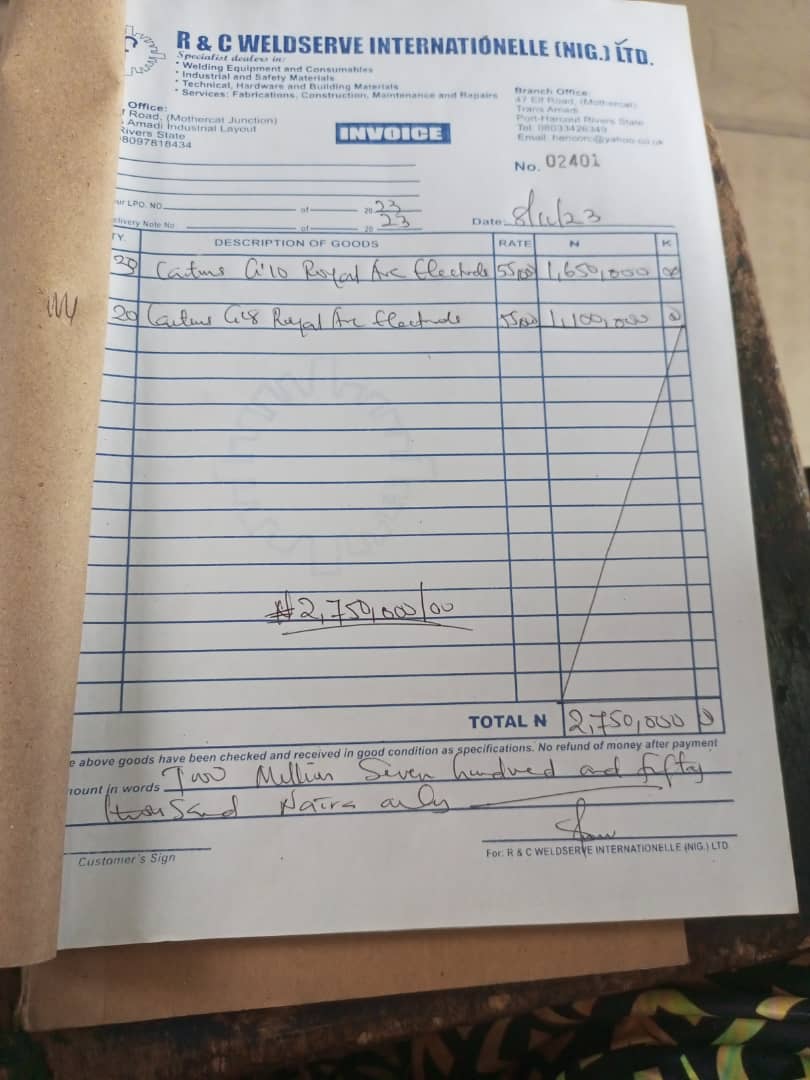 R & C WELDSERVE INTERNATIONELLE (NIG.) LTD.
Specialist dealers in:
* Welding Equipment and Consumables
* Industrial and Safety Materials
* Technical, Hardware and Building Materials
* Services: Fabrications, Construction, Maintenance and Repairs
Office:
Road, (Mothercat Junction)
Amadi Industrial Layout
Rivers State
8097818434
Branch Office:
47 Elf Road, (Mothercat)
Trans Amadi
Port-Harcourt Rivers State
Tel: 08033426349
INVOICE
No. 02401
LPO. NO. of 20 23
Delivery Note No of 20 23
Date: 8/11/23
TY. DESCRIPTION OF GOODS RATE N K
30 G10 Royal Arc Electrode 55,000 1,650,000 00
20 G18 Royal Arc Electrode 55,000 1,100,000
₦2,750,000/00
TOTAL N 2,750,000
e above goods have been checked and received in good condition as specifications. No refund of money after payment
mount in words Two Million Seven hundred and fifty
thousand Naira only
Customer's Sign
For: R & C WELDSERVE INTERNATIONELLE (NIG.) LTD